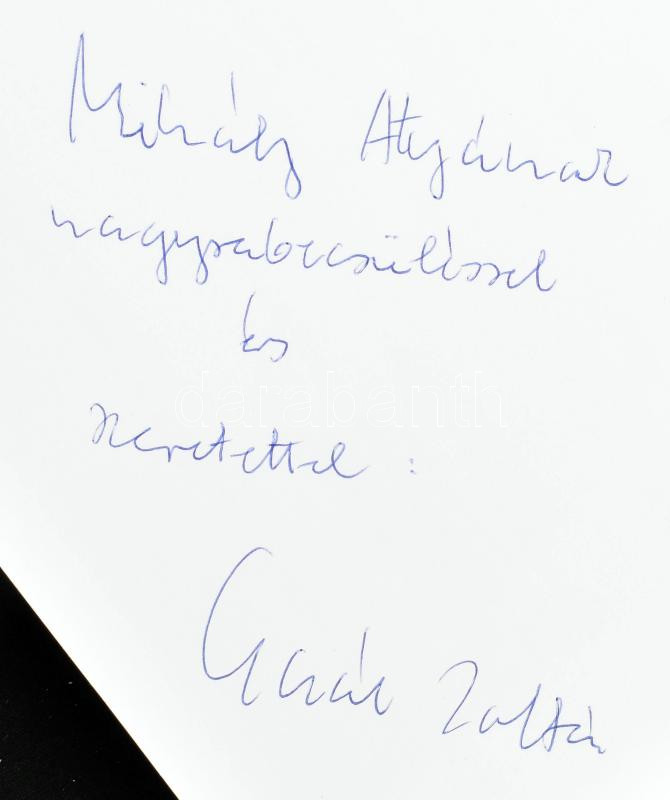 Mihály Atyának
nagyrabecsüléssel
és
darabanth
szeretettel :
Zoltán